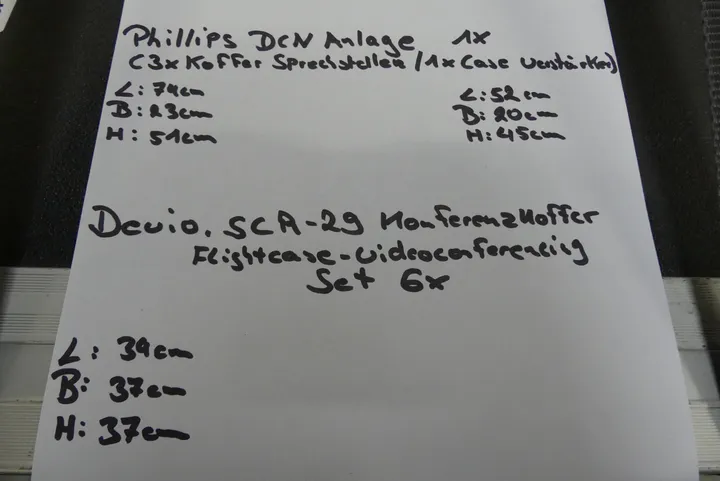 Phillips DCN Anlage 1x
(3x Koffer Sprechstellen / 1x Case Verstärker)
L: 74cm L: 52cm
B: 23cm B: 20cm
H: 51cm H: 45cm
Devio. SCR-29 Konferenzkoffer
Flightcase-Videoconferencing
Set 6x
L: 39cm
B: 37cm
H: 37cm